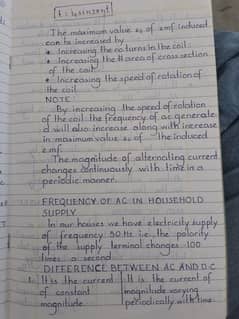 I = I₀ sin 2πnt
The maximum value ε₀ of emf induced
can be increased by
• Increasing the no turns in the coil
• Increasing the area of cross section
of the coil
• Increasing the speed of rotation of
the coil
NOTE:
By increasing the speed of rotation
of the coil the frequency of ac generate
d will also increase along with increase
in maximum value ε₀ of the induced
emf.
The magnitude of alternating current
changes continuously with time in a
periodic manner.
FREQUENCY OF AC IN HOUSEHOLD
SUPPLY
In our houses we have electricity supply
of frequency 50 Hz i.e., the polarity
of the supply terminal changes 100
times a second
DIFFERENCE BETWEEN AC AND DC
1. It is the current It is the current of
of constant magnitude varying
magnitude periodically with time